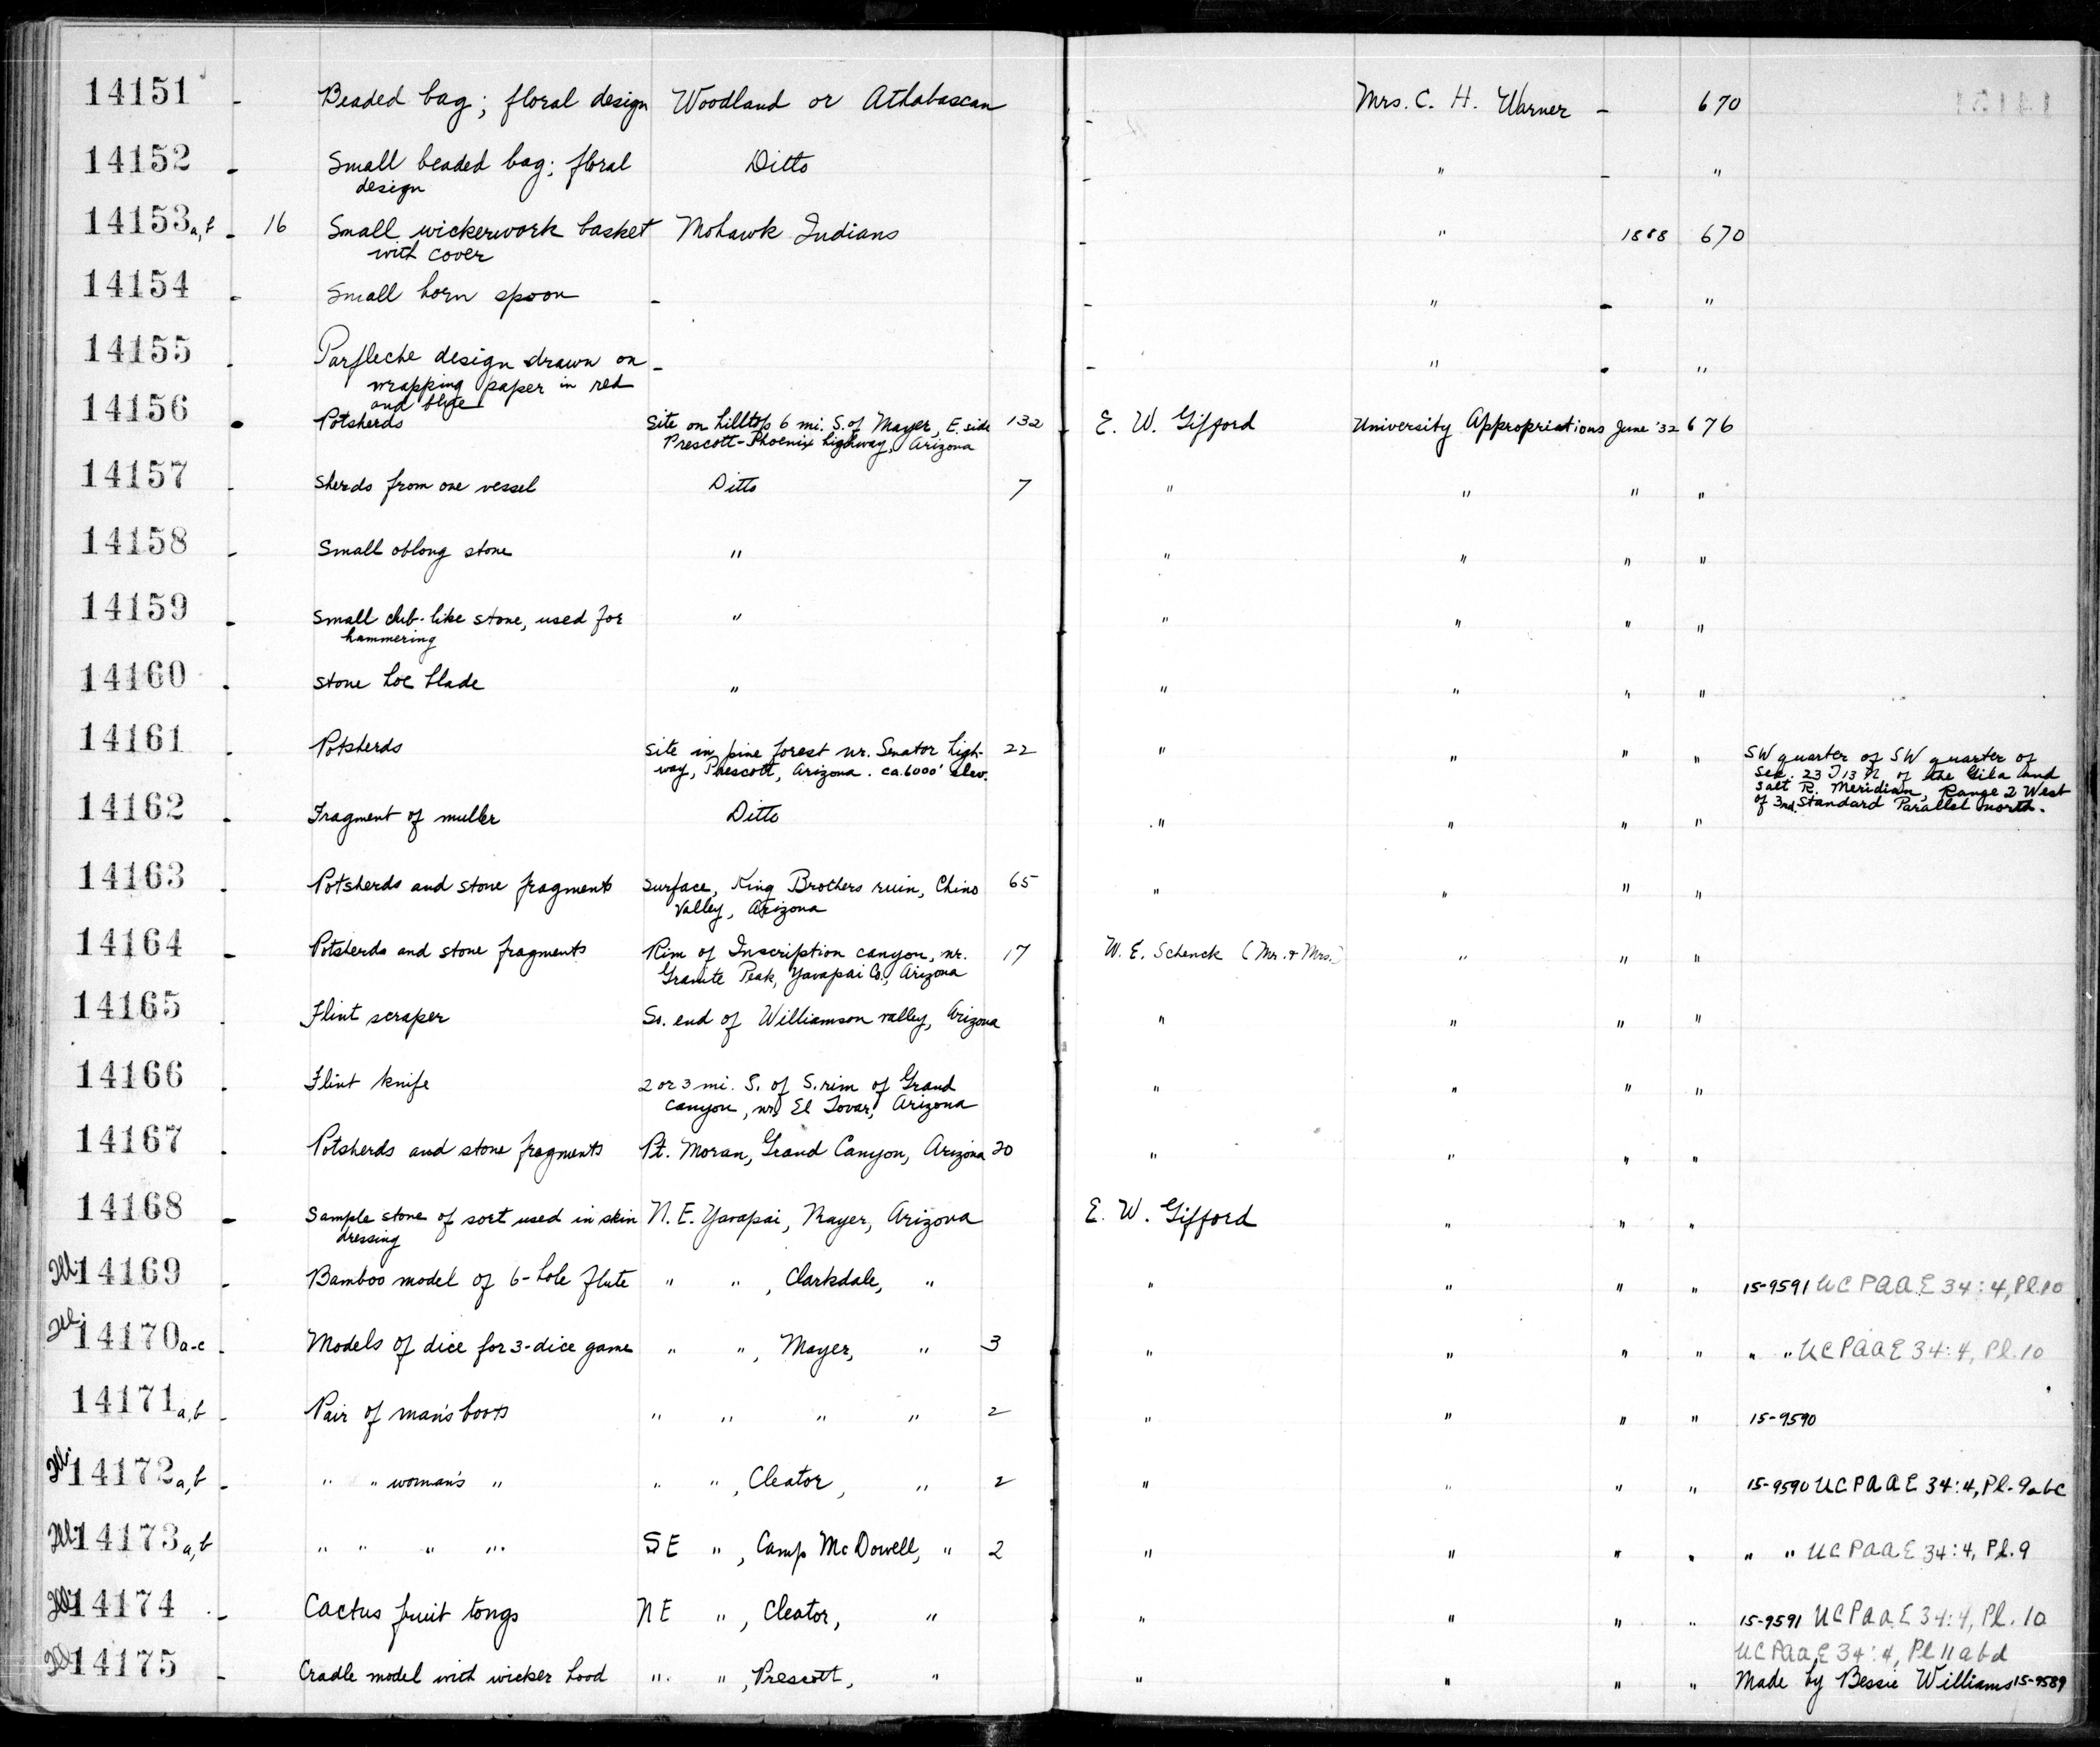 14151 - Beaded bag; floral design Woodland or Athabascan - Mrs. C. H. Warner - 670
14152 - Small beaded bag; floral Ditto - " - "
design
14153a,b - 16 Small wickerwork basket Mohawk Indians - " 1888 670
with cover
14154 - Small horn spoon - - " - "
14155 - Parfleche design drawn on - - " - "
wrapping paper in red
and blue
14156 - Potsherds Site on hilltop 6 mi. S. of Mayer, E. side 132 E. W. Gifford University Appropriations June '32 676
Prescott-Phoenix highway, Arizona
14157 - Sherds from one vessel Ditto 7 " " " "
14158 - Small oblong stone " " " " "
14159 - Small club-like stone, used for " " " " "
hammering
14160 - Stone hoe blade " " " " "
14161 - Potsherds Site in pine forest nr. Senator high- 22 " " " " SW quarter of SW quarter of
way, Prescott, Arizona. ca. 6000' elev. Sec. 23 T13 N of the Gila and
Salt R. Meridian, Range 2 West
of 3rd Standard Parallel north.
14162 - Fragment of muller Ditto " " " "
14163 - Potsherds and stone fragments Surface, King Brothers ruin, Chino 65 " " " "
Valley, Arizona
14164 - Potsherds and stone fragments Rim of Inscription canyon, nr. 17 W. E. Schenck (Mr. & Mrs.) " " "
Granite Peak, Yavapai Co., Arizona
14165 - Flint scraper So. end of Williamson valley, Arizona " " " "
14166 - Flint knife 2 or 3 mi. S. of S. rim of Grand " " " "
canyon, nr. El Tovar, Arizona
14167 - Potsherds and stone fragments Pt. Moran, Grand Canyon, Arizona 20 " " " "
14168 - Sample stone of sort used in skin N. E. Yavapai, Mayer, Arizona E. W. Gifford " " "
dressing
Ill 14169 - Bamboo model of 6-hole flute " " , Clarkdale, " " " " " 15-9591 UCPAAE 34:4, Pl. 10
Ill 14170a-c - Models of dice for 3-dice game " " , Mayer, " 3 " " " " " " UCPAAE 34:4, Pl. 10
14171a,b - Pair of man's boots " " " " 2 " " " " 15-9590
Ill 14172a,b - " " woman's " " " , Cleator, " 2 " " " " 15-9590 UCPAAE 34:4, Pl. 9abc
Ill 14173a,b " " " " SE " , Camp McDowell, " 2 " " " " " " UCPAAE 34:4, Pl. 9
Ill 14174 - Cactus fruit tongs NE " , Cleator, " " " " " 15-9591 UCPAAE 34:4, Pl. 10
UCPAAE 34:4, Pl 11abd
Ill 14175 - Cradle model with wicker hood " " , Prescott, " " " " " Made by Bessie Williams 15-9589